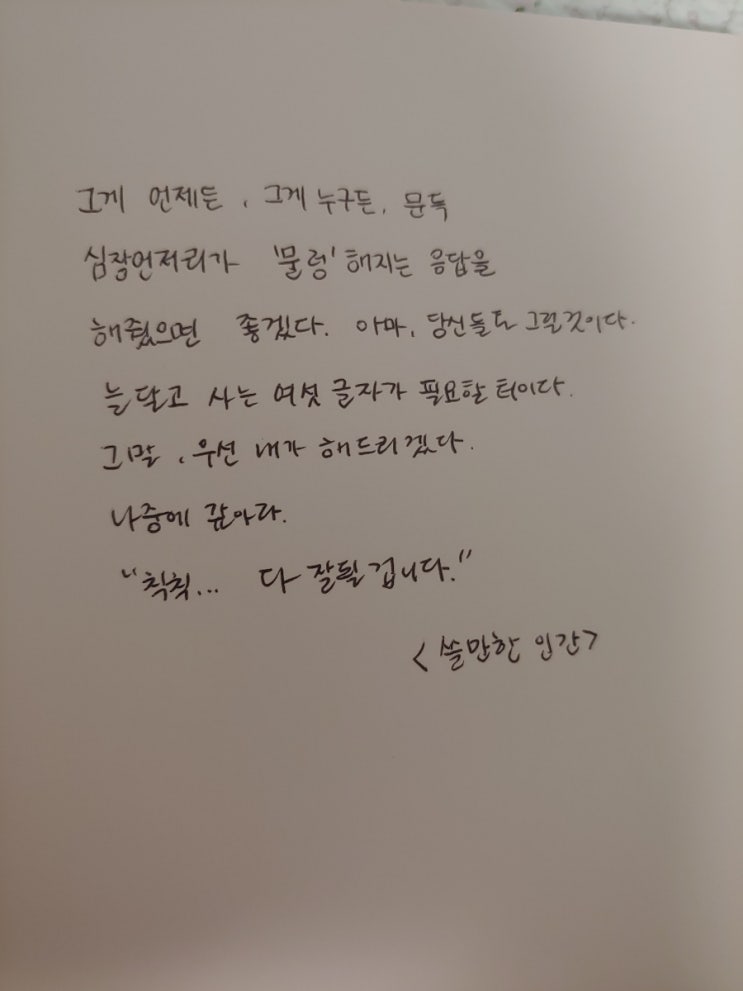 그게 언제든, 그게 누구든, 문득
심장언저리가 '물렁'해지는 응답을
해줬으면 좋겠다. 아마, 당신들도 그럴것이다.
늘 달고 사는 여섯 글자가 필요할 터이다.
그말, 우선 내가 해드리겠다.
나중에 갚아라.
"칙칙... 다 잘될 겁니다."
<쓸만한 인간>